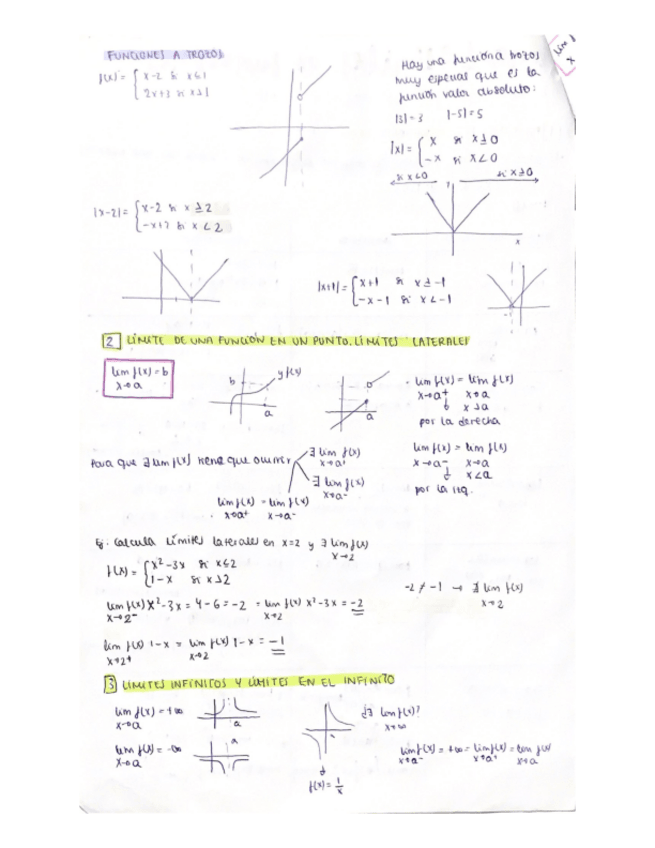 FUNCIONES A TROZOS
f(x) = { x-2 si x≤1
2x+3 si x>1
Hay una función a trozos
muy especial que es la
función valor absoluto:
|3|=3 |-5|=5
|x| = { x si x≥0
-x si x<0
si x<0 si x≥0
x
|x-2| = { x-2 si x≥2
-x+2 si x<2
|x+1| = { x+1 si x≥-1
-x-1 si x<-1
2 LÍMITE DE UNA FUNCIÓN EN UN PUNTO. LÍMITES LATERALES
lim f(x) = b
x→a
b y f(x)
a
a
- lim f(x) = lim f(x)
x→a+ x→a
x>a
por la derecha
lim f(x) = lim f(x)
x→a- x→a
x<a
por la izq.
Para que ∃ lim f(x) tiene que ocurrir
∃ lim f(x)
x→a+
∃ lim f(x)
x→a-
lim f(x) = lim f(x)
x→a+ x→a-
Ej: Calcula límites laterales en x=2 y ∃ lim f(x)
x→2
f(x) = { x²-3x si x≤2
1-x si x>2
lim f(x) x²-3x = 4-6 = -2 = lim f(x) x²-3x = -2
x→2- x→2
-2 ≠ -1 → ∄ lim f(x)
x→2
lim f(x) 1-x = lim f(x) 1-x = -1
x→2+ x→2
3 LÍMITES INFINITOS Y LÍMITES EN EL INFINITO
lim f(x) = +∞
x→a
a
¿∃ lim f(x)?
lim f(x) = -∞
x→a
a
lim f(x) = +∞ = lim f(x) = lim f(x)
x→a- x→a+ x→a
f(x) = 1/x